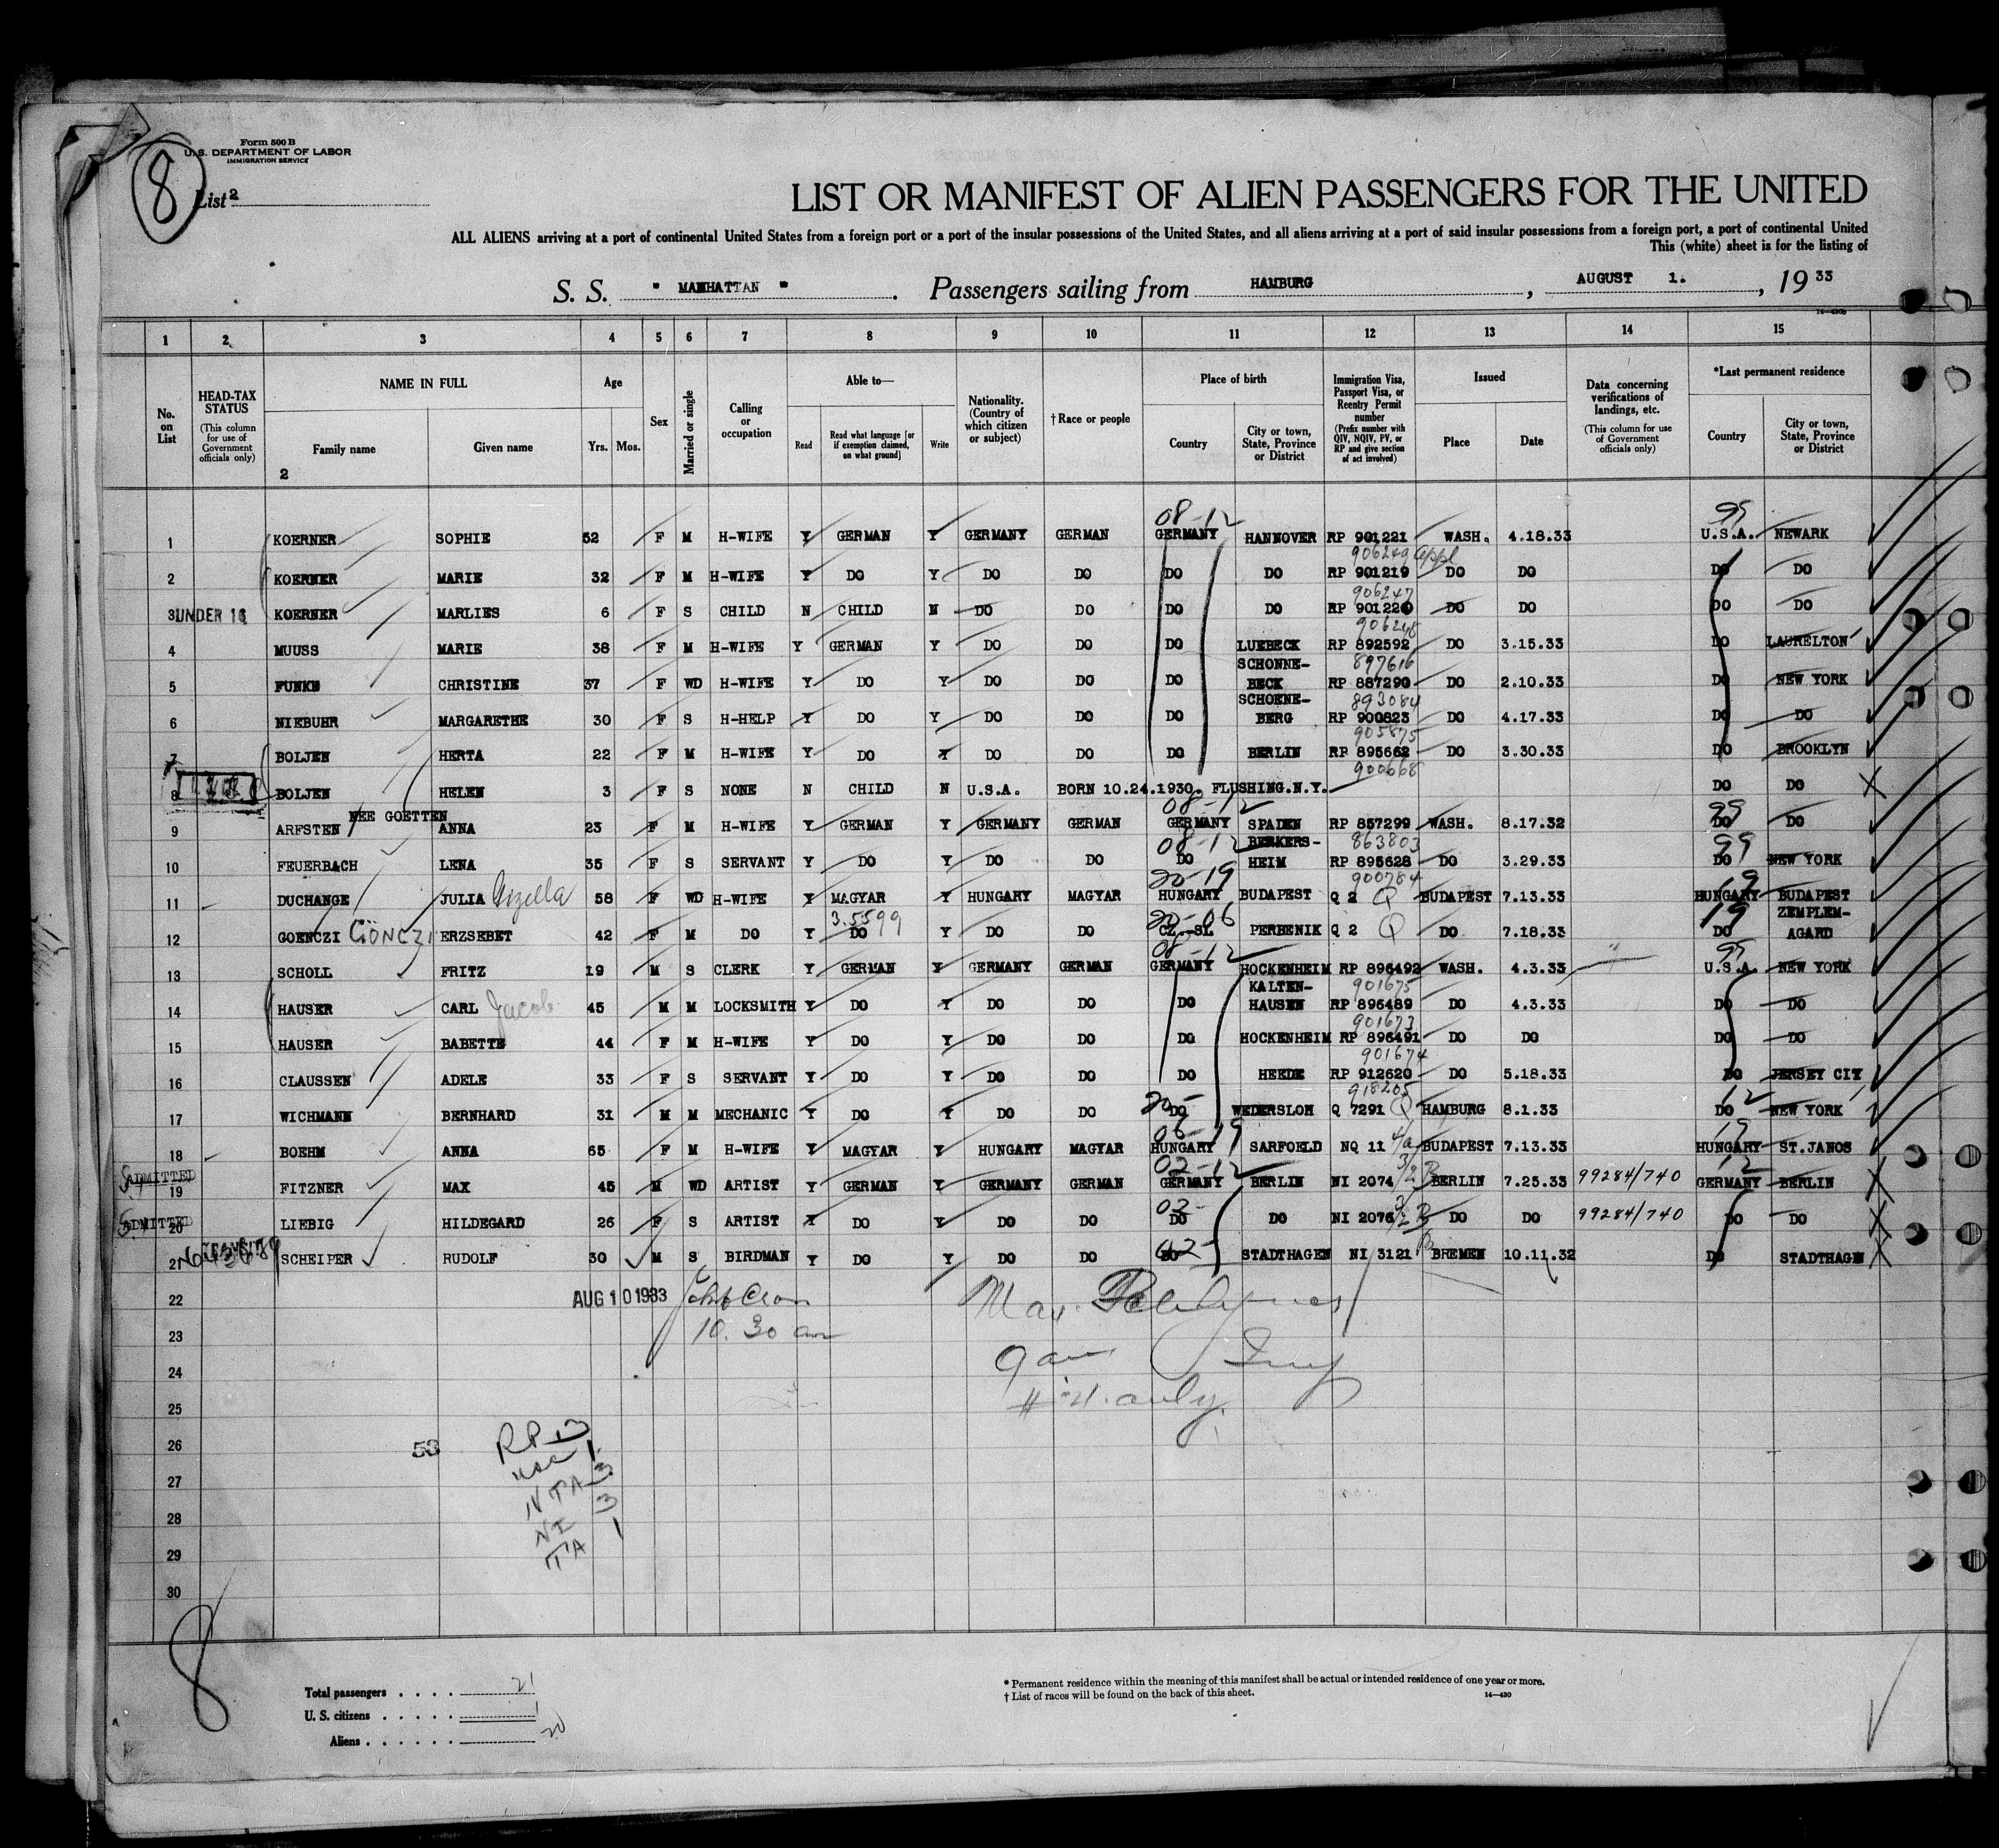 Form 500 B
U.S. DEPARTMENT OF LABOR
IMMIGRATION SERVICE
8
List 2
LIST OR MANIFEST OF ALIEN PASSENGERS FOR THE UNITED
ALL ALIENS arriving at a port of continental United States from a foreign port or a port of the insular possessions of the United States, and all aliens arriving at a port of said insular possessions from a foreign port, a port of continental United
This (white) sheet is for the listing of
S. S. " MANHATTAN " . Passengers sailing from HAMBURG , AUGUST 1. , 19 33
14—430b
1 2 3 4 5 6 7 8 9 10 11 12 13 14 15
No. on List
HEAD-TAX STATUS (This column for use of Government officials only)
NAME IN FULL
Family name
Given name
2
Age
Yrs. Mos.
Sex
Married or single
Calling or occupation
Able to—
Read
Read what language [or if exemption claimed, on what ground]
Write
Nationality. (Country of which citizen or subject)
† Race or people
Place of birth
Country
City or town, State, Province or District
Immigration Visa, Passport Visa, or Reentry Permit number (Prefix number with QIV, NQIV, PV, or RP and give section of act involved)
Issued
Place
Date
Data concerning verifications of landings, etc. (This column for use of Government officials only)
*Last permanent residence
Country
City or town, State, Province or District
08-12 99
1 KOERNER SOPHIE 52 F M H-WIFE Y GERMAN Y GERMANY GERMAN GERMANY HANNOVER RP 901221 WASH. 4.18.33 U.S.A. NEWARK
906249 appl
2 KOERNER MARIE 32 F M H-WIFE Y DO Y DO DO DO DO RP 901219 DO DO DO DO
906247
3 UNDER 16 KOERNER MARLIES 6 F S CHILD N CHILD N DO DO DO DO RP 901220 DO DO DO DO
906248
4 MUUSS MARIE 38 F M H-WIFE Y GERMAN Y DO DO DO LUEBECK RP 892592 DO 3.15.33 DO LAURELTON
897616
5 FUNKE CHRISTINE 37 F WD H-WIFE Y DO Y DO DO DO SCHONNE-BECK RP 887290 DO 2.10.33 DO NEW YORK
893084
6 NIEBUHR MARGARETHE 30 F S H-HELP Y DO Y DO DO DO SCHOENE-BERG RP 900823 DO 4.17.33 DO DO
905875
7 BOLJEN HERTA 22 F M H-WIFE Y DO Y DO DO DO BERLIN RP 895662 DO 3.30.33 DO BROOKLYN
900668
8 BOLJEN HELEN 3 F S NONE N CHILD N U.S.A. BORN 10.24.1930. FLUSHING.N.Y. DO DO
08-12 99
9 ARFSTEN NEE GOETTEN ANNA 23 F M H-WIFE Y GERMAN Y GERMANY GERMAN GERMANY SPADEN RP 857299 WASH. 8.17.32 DO DO
08-12 863803 99
10 FEUERBACH LENA 35 F S SERVANT Y DO Y DO DO DO BERKERS-HEIM RP 895628 DO 3.29.33 DO NEW YORK
20-19 900784 19
11 DUCHANGE JULIA Gizella 58 F WD H-WIFE Y MAGYAR Y HUNGARY MAGYAR HUNGARY BUDAPEST Q 2 Q BUDAPEST 7.13.33 HUNGARY BUDAPEST
3.5599 20-06 19
12 GOENCZI GÖNCZI ERZSEBET 42 F M DO Y DO Y DO DO CZ.-SL PERBENIK Q 2 Q DO 7.18.33 DO ZEMPLEM-AGARD
08-12 99
13 SCHOLL FRITZ 19 M S CLERK Y GERMAN Y GERMANY GERMAN GERMANY HOCKENHEIM RP 896492 WASH. 4.3.33 U.S.A. NEW YORK
901675
14 HAUSER CARL Jacob 45 M M LOCKSMITH Y DO Y DO DO DO KALTEN-HAUSEN RP 896489 DO 4.3.33 DO DO
901673
15 HAUSER BABETTE 44 F M H-WIFE Y DO Y DO DO DO HOCKENHEIM RP 896491 DO DO DO DO
901674
16 CLAUSSEN ADELE 33 F S SERVANT Y DO Y DO DO DO HEEDE RP 912620 DO 5.18.33 DO JERSEY CITY
918205 12
17 WICHMANN BERNHARD 31 M M MECHANIC Y DO Y DO DO DO WEDERSLOH Q 7291 Q HAMBURG 8.1.33 DO NEW YORK
06-19 19
18 BOEHM ANNA 65 F M H-WIFE Y MAGYAR Y HUNGARY MAGYAR HUNGARY SARFOELD NQ 11 4/a BUDAPEST 7.13.33 HUNGARY ST.JANOS
02-12 12
ADMITTED 19 FITZNER MAX 45 M WD ARTIST Y GERMAN Y GERMANY GERMAN GERMANY BERLIN NI 2074 3/2 B BERLIN 7.25.33 99284/740 GERMANY BERLIN
02-
ADMITTED 20 LIEBIG HILDEGARD 26 F S ARTIST Y DO Y DO DO DO DO NI 2076 3/2 B DO DO 99284/740 DO DO
21 SCHEIPER RUDOLF 30 M S BIRDMAN Y DO Y DO DO DO 02- STADTHAGEN NI 3121 BREMEN 10.11.32 DO STADTHAGEN
22 AUG 10 1933
23 10.30 am
24 9 am
25
26 53 RP 13
27 USC 1
28 NTA 3
29 NI 3
30 TA 1
8
Total passengers . . . . 21
U. S. citizens . . . . . 1
Aliens . . . . . . 20
* Permanent residence within the meaning of this manifest shall be actual or intended residence of one year or more.
† List of races will be found on the back of this sheet. 14—430